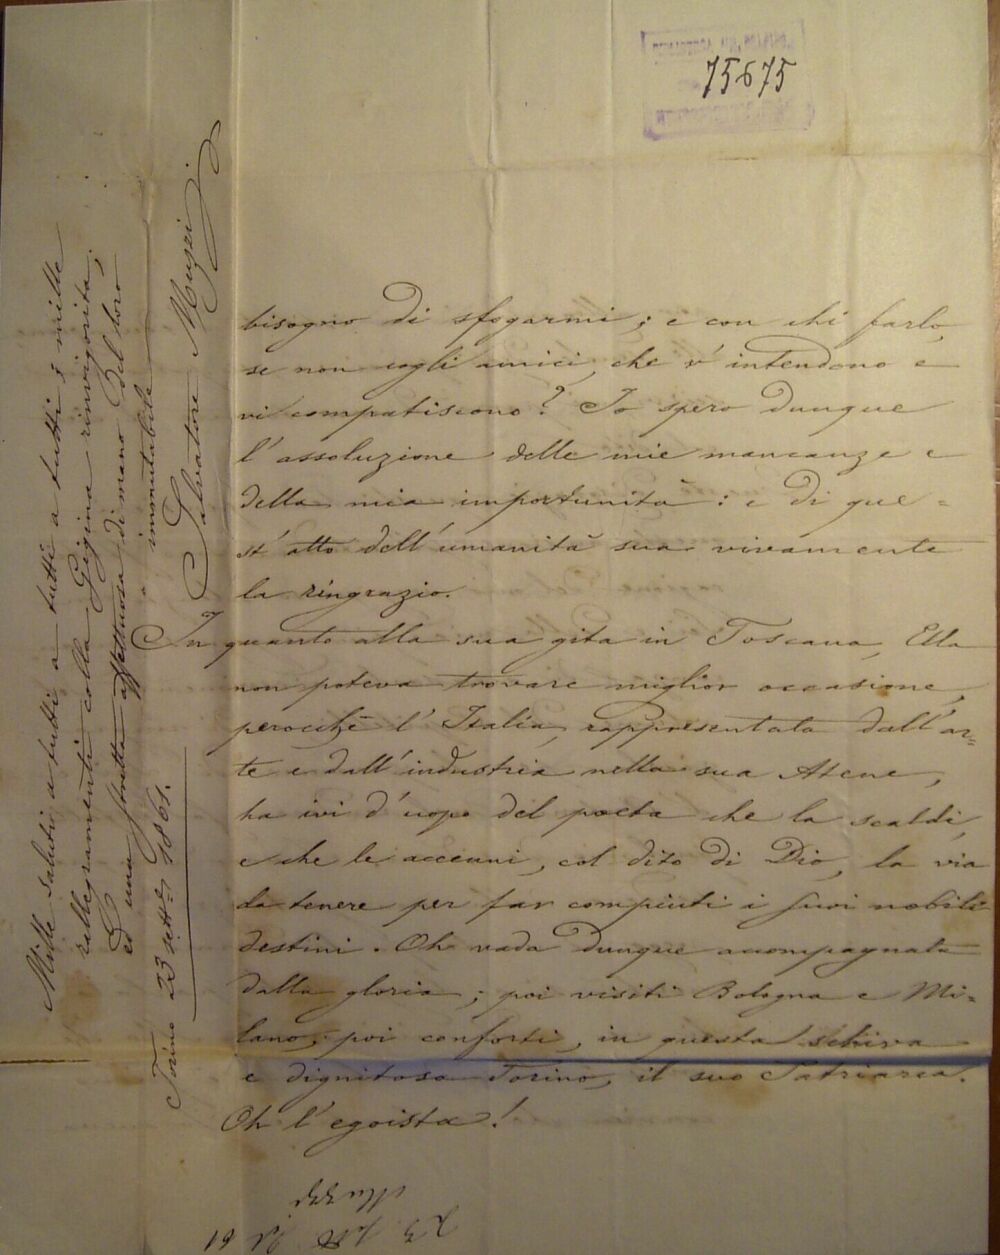 75675
bisogno di sfogarmi; e con chi farlo,
se non cogli amici, che v'intendono e
vi compatiscono? Io spero dunque
l'assoluzione delle mie mancanze e
della mia importunità: e di que=
st'atto dell'umanità sua vivamente
la ringrazio.
In quanto alla sua gita in Toscana, Ella
non poteva trovare miglior occasione,
perocchè l'Italia, rappresentata dall'ar=
te e dall'industria nella sua Atene,
ha ivi d'uopo del poeta che la scaldi,
e che le accenni, col dito di Dio, la via
da tenere per far compiuti i suoi nobili
destini. Oh vada dunque accompagnata
dalla gloria; poi visiti Bologna e Mi=
lano; poi conforti, in questa schiva
e dignitosa Torino, il suo Patriarca.
Oh l'egoista!
Mille saluti a tutti a tutti a tutti; mille
rallegramenti colla Gigina rinvigorita;
ed una stretta affettuosa di mano del loro
immutabile
Salvatore Muzzi
Torino 23 sett.e 1861.
Muzzi
23 61